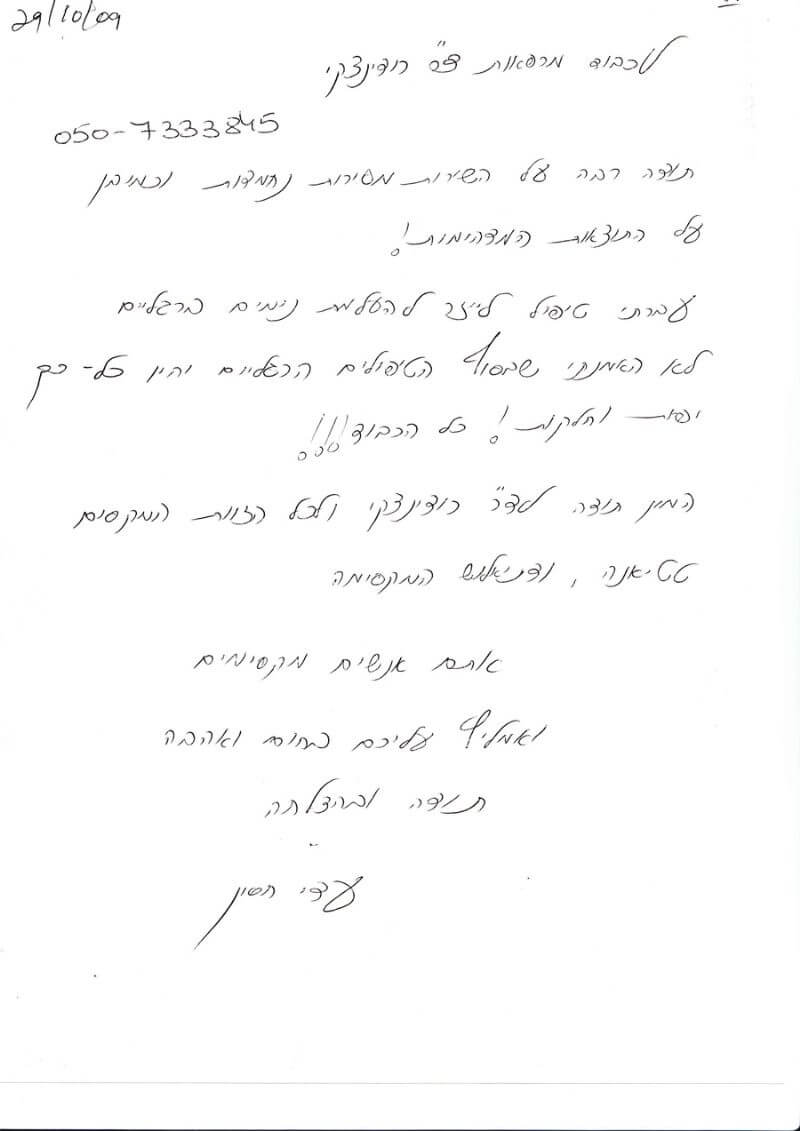 29/10/09
לכבוד מרפאת ד"ר רודינצקי
050-7333845
תודה רבה על השירות מסירות נחמדות וכמובן
על התוצאות המדהימות!
עברתי טיפול לייזר להעלמת נימים ברגליים
לא האמנתי שבסוף הטיפולים הרגליים יהיו כל-כך
יפות וחלקות! כל הכבוד!!!
המון תודה לד"ר רודינצקי ולכל הצוות המקסים
טטיאנה, ודניאלוש המקסימה
אתם אנשים מקסימים
ואמליץ עליכם בחום ואהבה
תודה ובהצלחה
עדי חסון